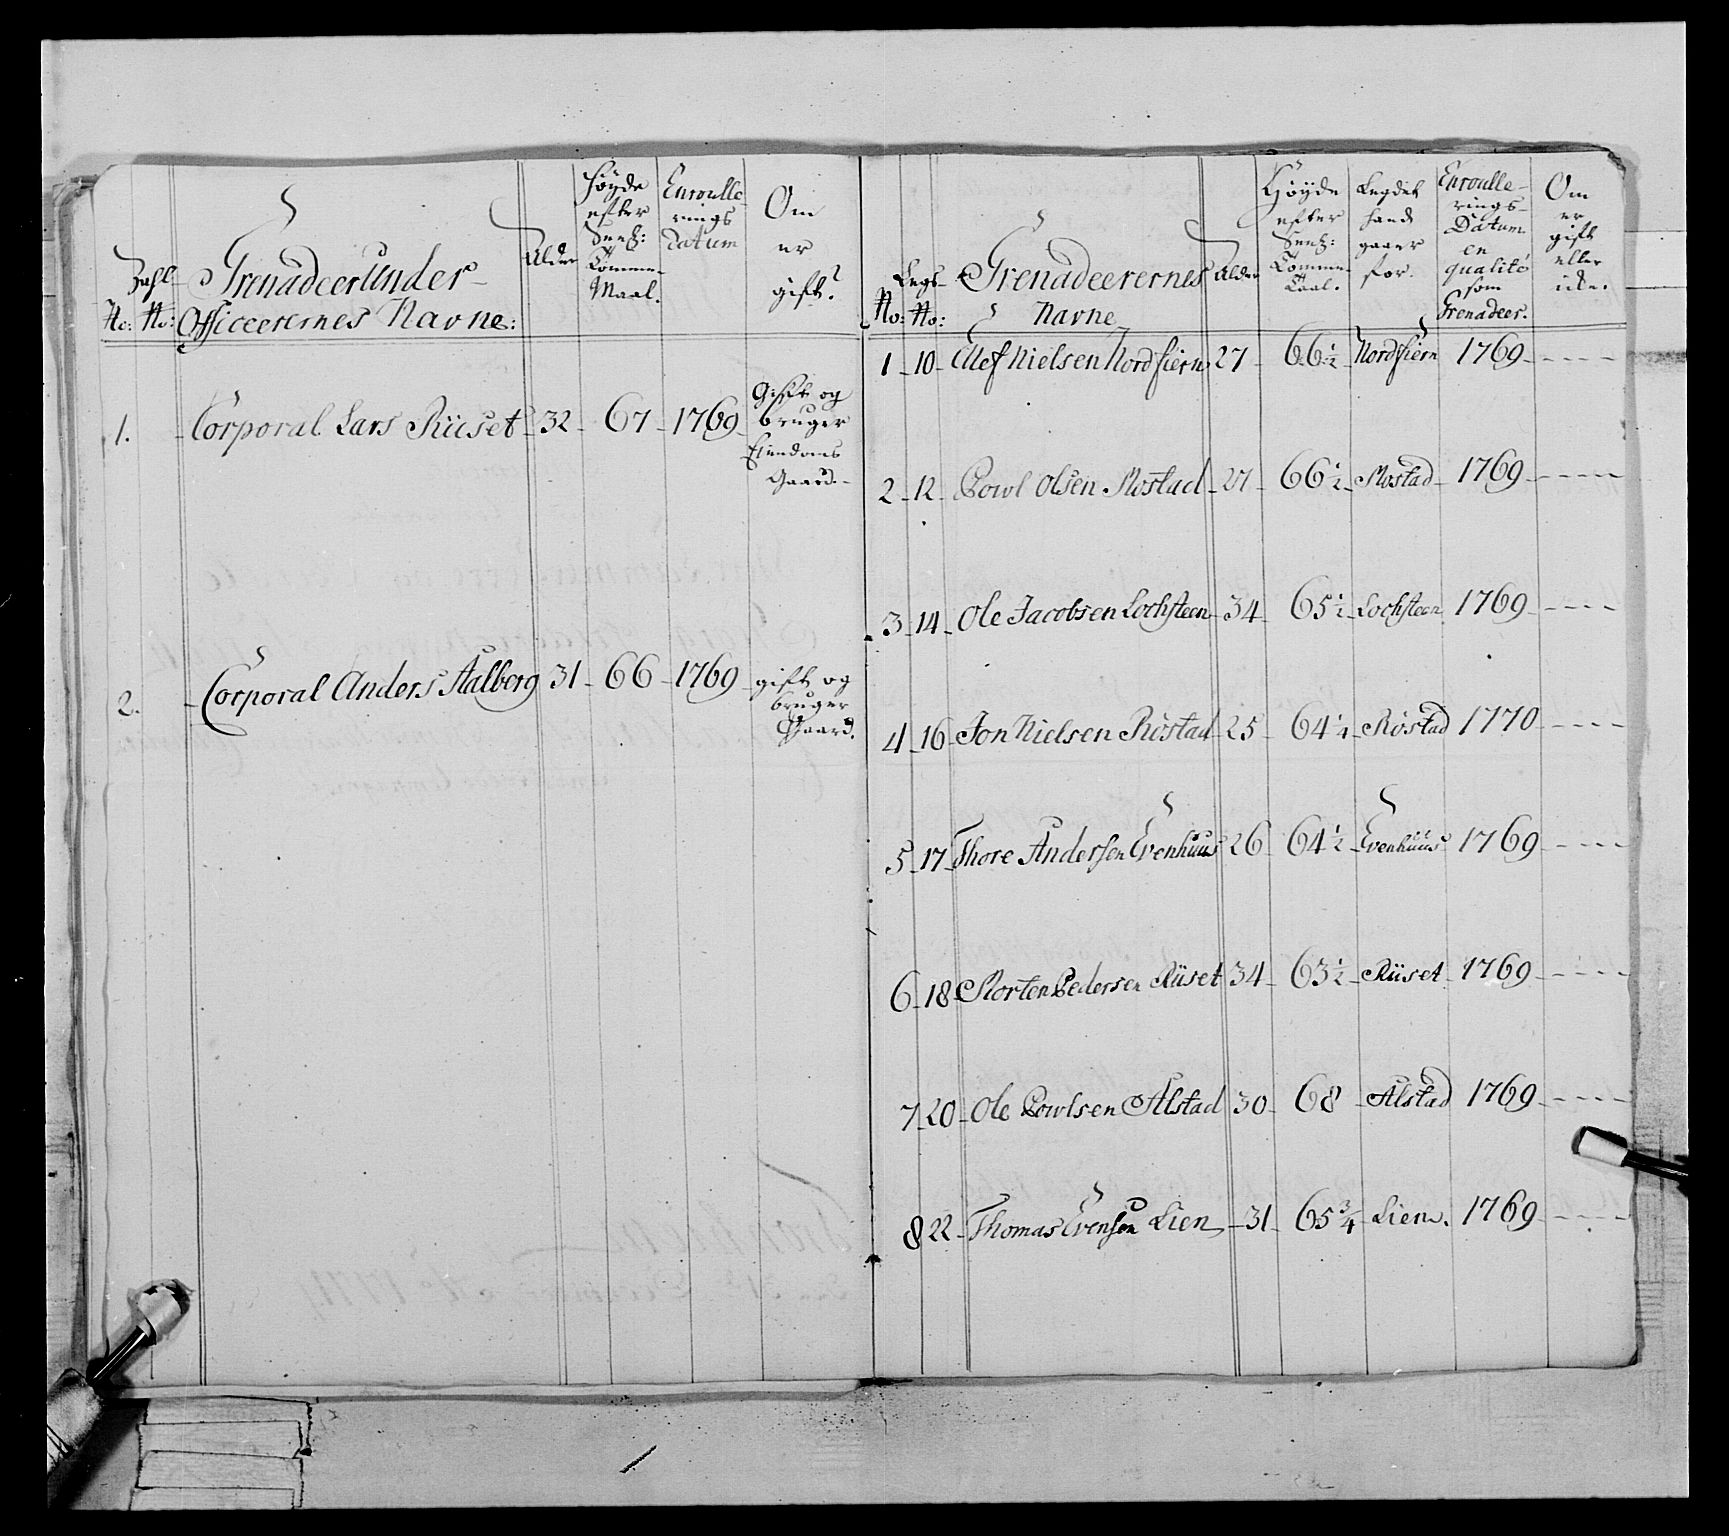 No:
Zahl No:
Grenadeer Under-
Officeerernes Navne:
Alder
Höyde
efter
Comme-
Maal.
Enroulle-
rings
Datum
Om
er
gift?
1.
Corporal Lars Rüset 32 67 1769
Gift og
bruger
Eiendoms
Gaard.
2.
Corporal Anders Aalberg 31 66 1769
gift og
bruger
Gaard.
No:
Legs-
No:
Grenadeerernes
Navne
Alder
Höyde
efter
Comme-
Legdet
hand
gaaer
for.
Enroulle-
rings-
Datum
en
qualité
som
Grenadeer.
Om
er
gift
eller
icke.
1 10 Ellef Nielsen Nordfiern 27 66 1/2 Nordfiern 1769 - - - -
2 12 Powl Olsen Mostad 27 66 1/2 Mostad 1769 - - - -
3 14 Ole Jacobsen Lochsteen 34 65 1/2 Lochsteen 1769 - - - -
4 16 Jon Nielsen Röstad 25 64 1/4 Röstad 1770 - - - -
5 17 Thore Andersen Evenhuus 26 64 1/2 Evenhuus 1769 - - - -
6 18 Morten Pedersen Rüset 34 63 1/2 Rüset 1769 - - - -
7 20 Ole Powlsen Alstad 30 68 Alstad 1769 - - - -
8 22 Thomas Evensen Lien 31 65 3/4 Lien. 1769 - - - -